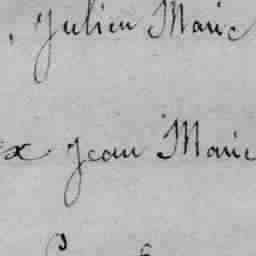 , Julien Marie
x Jean Marie